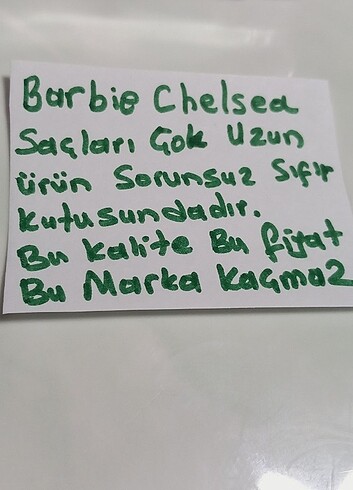 Barbie Chelsea
Saçları Çok Uzun
ürün Sorunsuz Sıfır
Kutusundadır.
Bu Kalite Bu fiyat
Bu Marka Kaçmaz